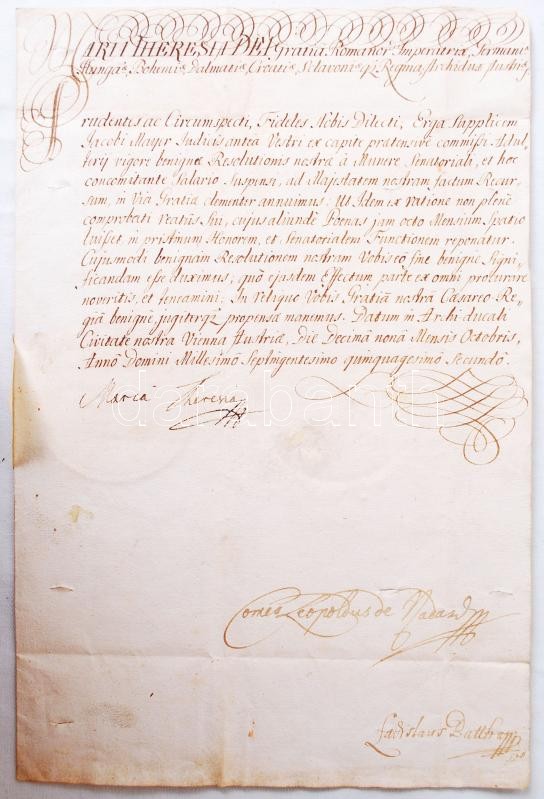 MARIA THERESIA DEI Gratia Romanor Imperatrix, Germaniæ
Hungaæ, Bohemiæ, Dalmatiæ, Croatiæ, Sclavoniæ Regina, Archidux Austriæ
Prudentes ac Circumspecti, Fideles Nobis Dilecti, Erga Supplicem
Jacobi Mayer Judicis antea Vestri ex capite prætensive commissi Adul-
terij vigore benignæ Resolutionis nostræ â Munere Senatoriali, et hoc
concomitante Salario Suspensi, ad Majestatem nostram factum Recur-
sum, in Via Gratiæ clementer annuimus; Ut Idem ex ratione non plenè
comprobati reatûs Sui, cujus aliunde Poenas jam octo Mensium Spatio
luisset, in pristinum Honorem, et Senatorialem Functionem reponatur.
Cujusmodi benignam Resolutionem nostram Vobis eo fine benignè Signi-
ficandam esse duximus; quô ejusdem Effectum parte ex omni procurare
noveritis, et teneamini; In reliquo Vobis Gratiâ nostrâ Cæsareo Re-
giâ benignè jugiterq3 propensâ manemus. Datum in Archi-ducali
Civitate nostra Vienna Austriæ, Die Decimâ nonâ Mensis Octobris,
Annô Domini Millesimô Septingentesimo quinquagesimo Secundô.
Maria Theresia
darabanth
Comes Leopoldus de Nadasd
Ladislaus